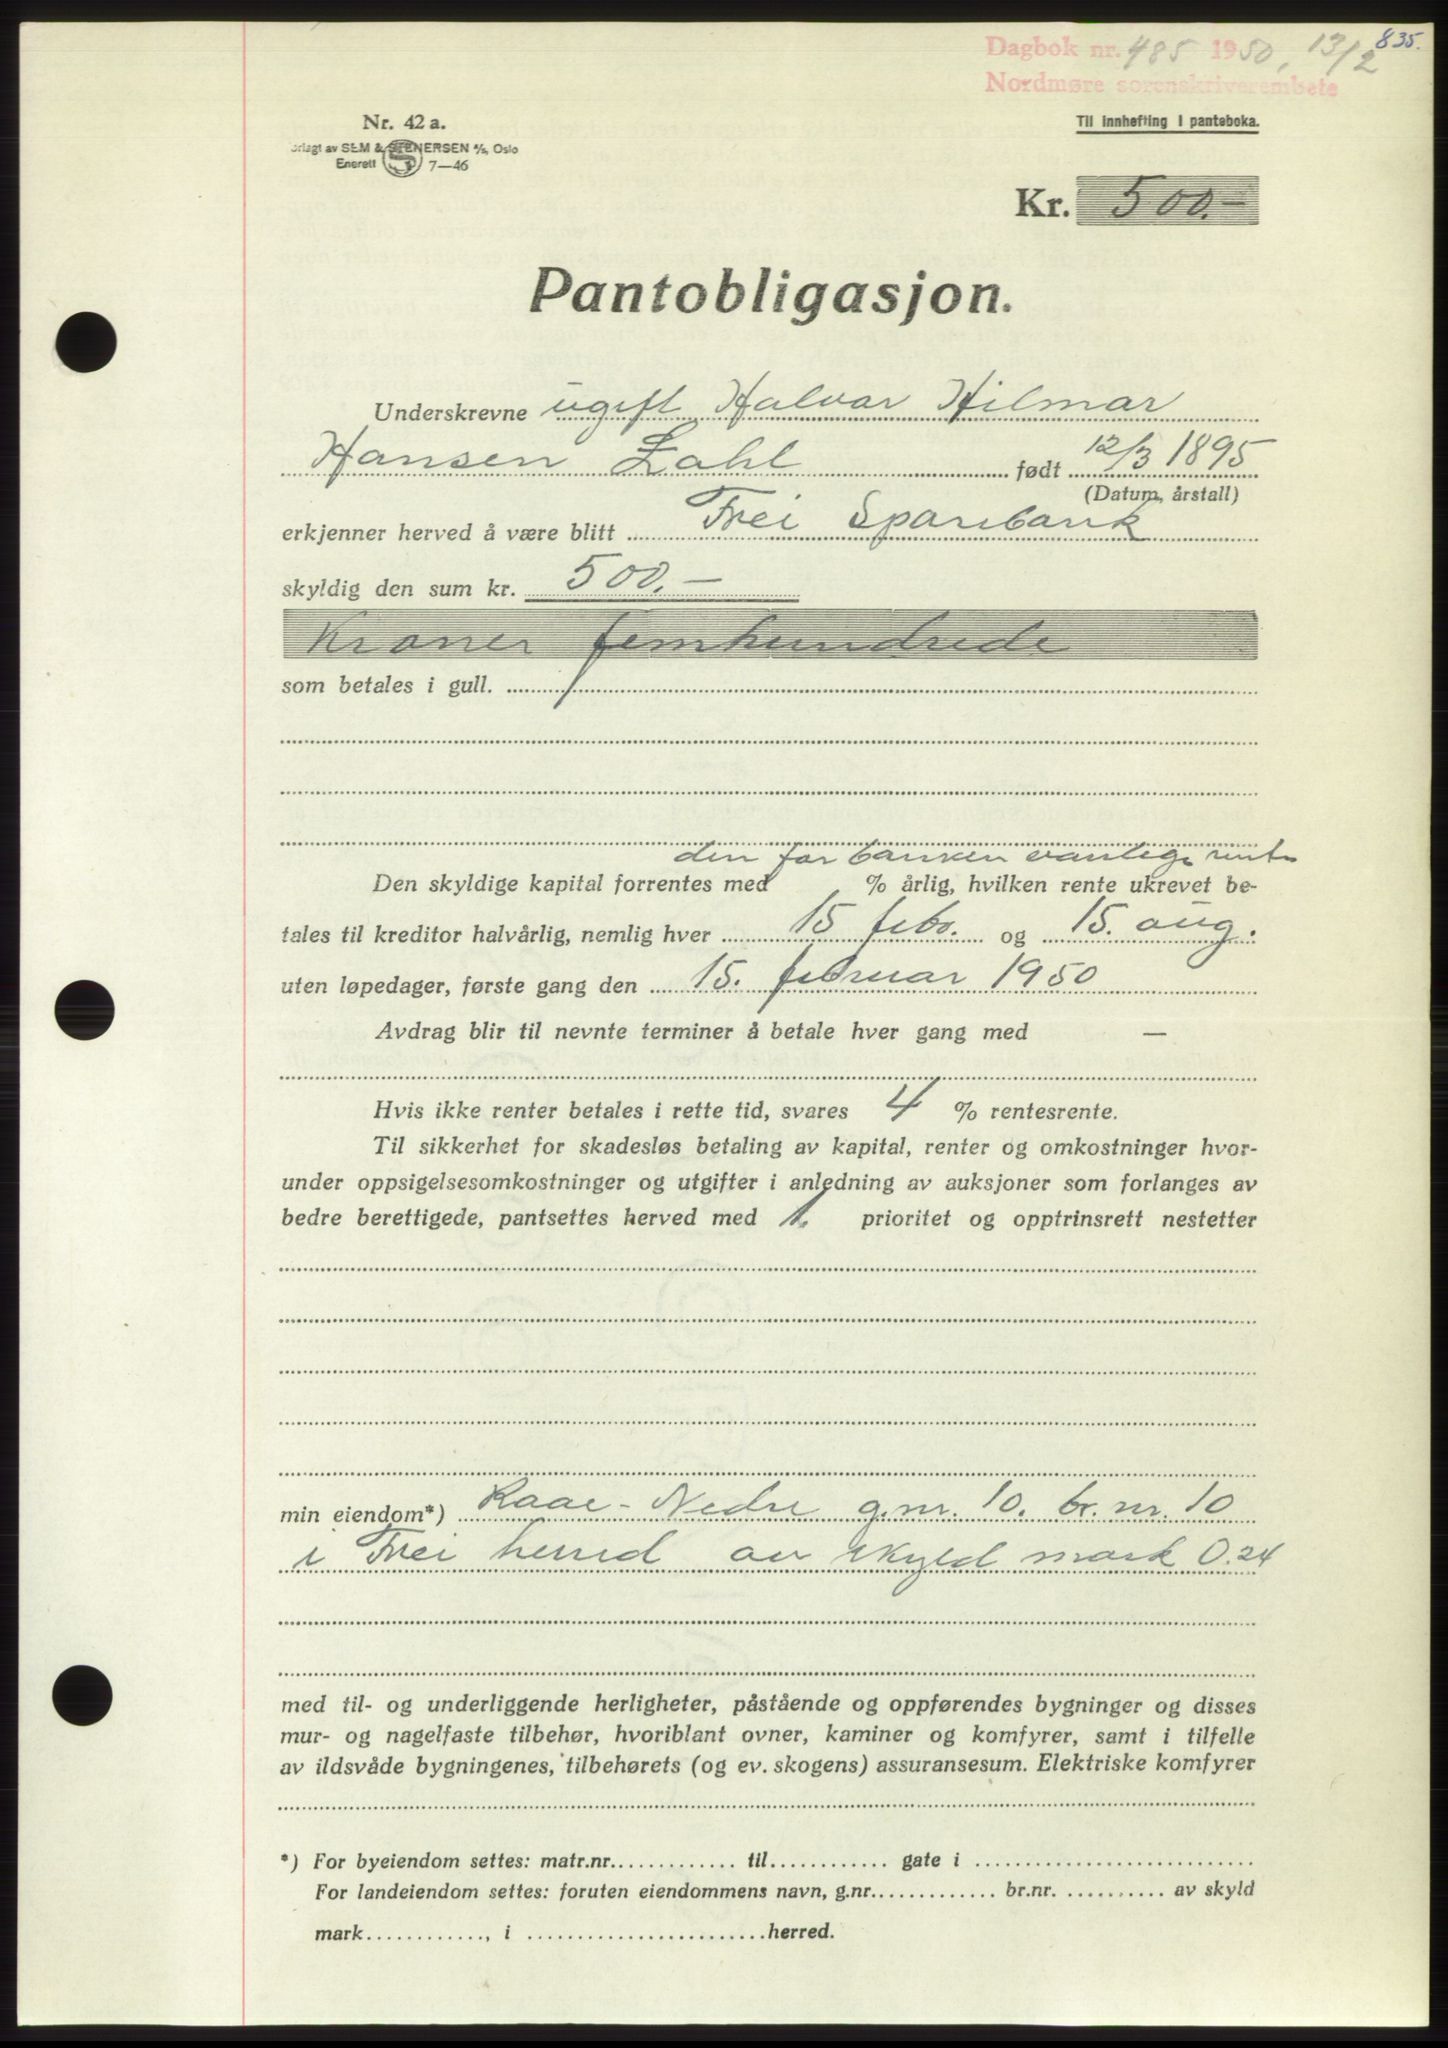 835.
Dagbok nr. 485 1950, 13/2
Nordmøre sorenskriverembete
Nr. 42 a.
Til innhefting i panteboka.
orlagt av SEM & STENERSEN A/s, Oslo
Enerett S 7—46
Kr. 500.-
Pantobligasjon.
Underskrevne ugift Halvar Hilmar
Hansen Zahl født 12/3 1895
(Datum, årstall)
erkjenner herved å være blitt Frei Sparebank
skyldig den sum kr. 500.-
Kroner femhundrede
som betales i gull.
den for banken vanlige rente
Den skyldige kapital forrentes med % årlig, hvilken rente ukrevet be-
tales til kreditor halvårlig, nemlig hver 15 febr. og 15. aug.
uten løpedager, første gang den 15. februar 1950
Avdrag blir til nevnte terminer å betale hver gang med —
Hvis ikke renter betales i rette tid, svares 4 % rentesrente.
Til sikkerhet for skadesløs betaling av kapital, renter og omkostninger hvor-
under oppsigelsesomkostninger og utgifter i anledning av auksjoner som forlanges av
bedre berettigede, pantsettes herved med 1. prioritet og opptrinsrett nestetter
min eiendom*) Raae - Nedre g.nr. 10. br. nr. 10
i Frei herred av skyld mark 0.24
med til- og underliggende herligheter, påstående og oppførendes bygninger og disses
mur- og nagelfaste tilbehør, hvoriblant ovner, kaminer og komfyrer, samt i tilfelle
av ildsvåde bygningenes, tilbehørets (og ev. skogens) assuransesum. Elektriske komfyrer
*) For byeiendom settes: matr.nr. ............ til ............ gate i ............
For landeiendom settes: foruten eiendommens navn, g.nr. ............ br.nr. ............ av skyld
mark ............, i ............ herred.